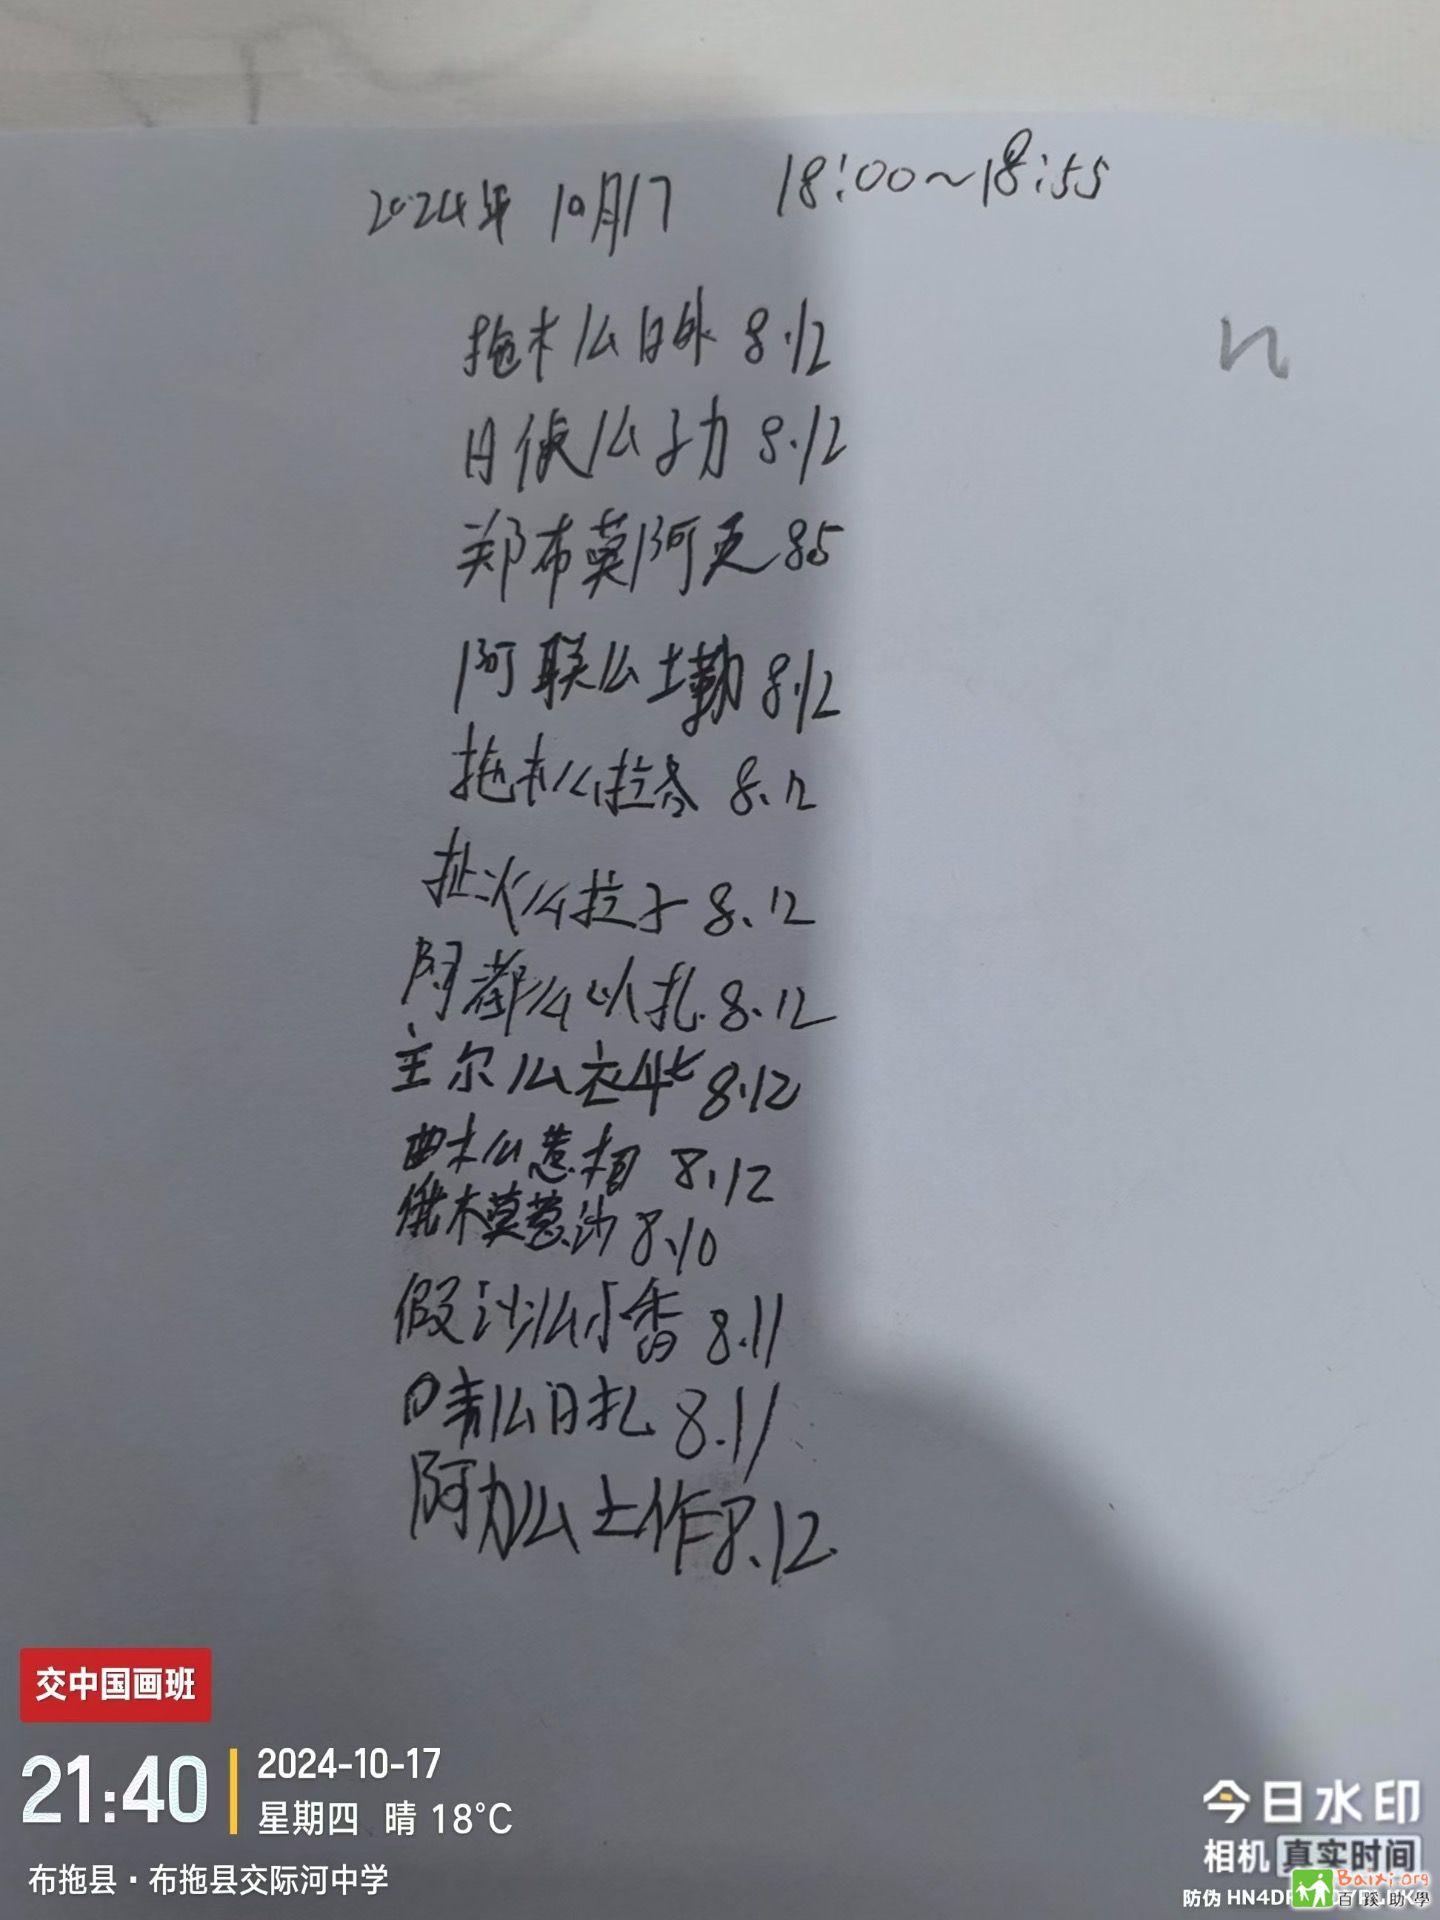 2024年 10月17 18:00~18:55
n
拖木么日外 8.12
日侯么子力 8.12
郑布莫阿更 8.5
阿联么土勤 8.12
拖木么拉各 8.12
扯次么拉子 8.12
阿都么以扎 8.12
主尔么衣牛七 8.12
曲木么惹相 8.12
俄木莫惹沙 8.10
假沙么小香 8.11
么日扎 8.11
阿力么土作 8.12
交中国画班
21:40
2024-10-17
星期四 晴 18°C
布拖县·布拖县交际河中学
今日水印
相机 真实时间
防伪 HN4D
Baixi.org
百蹊助學